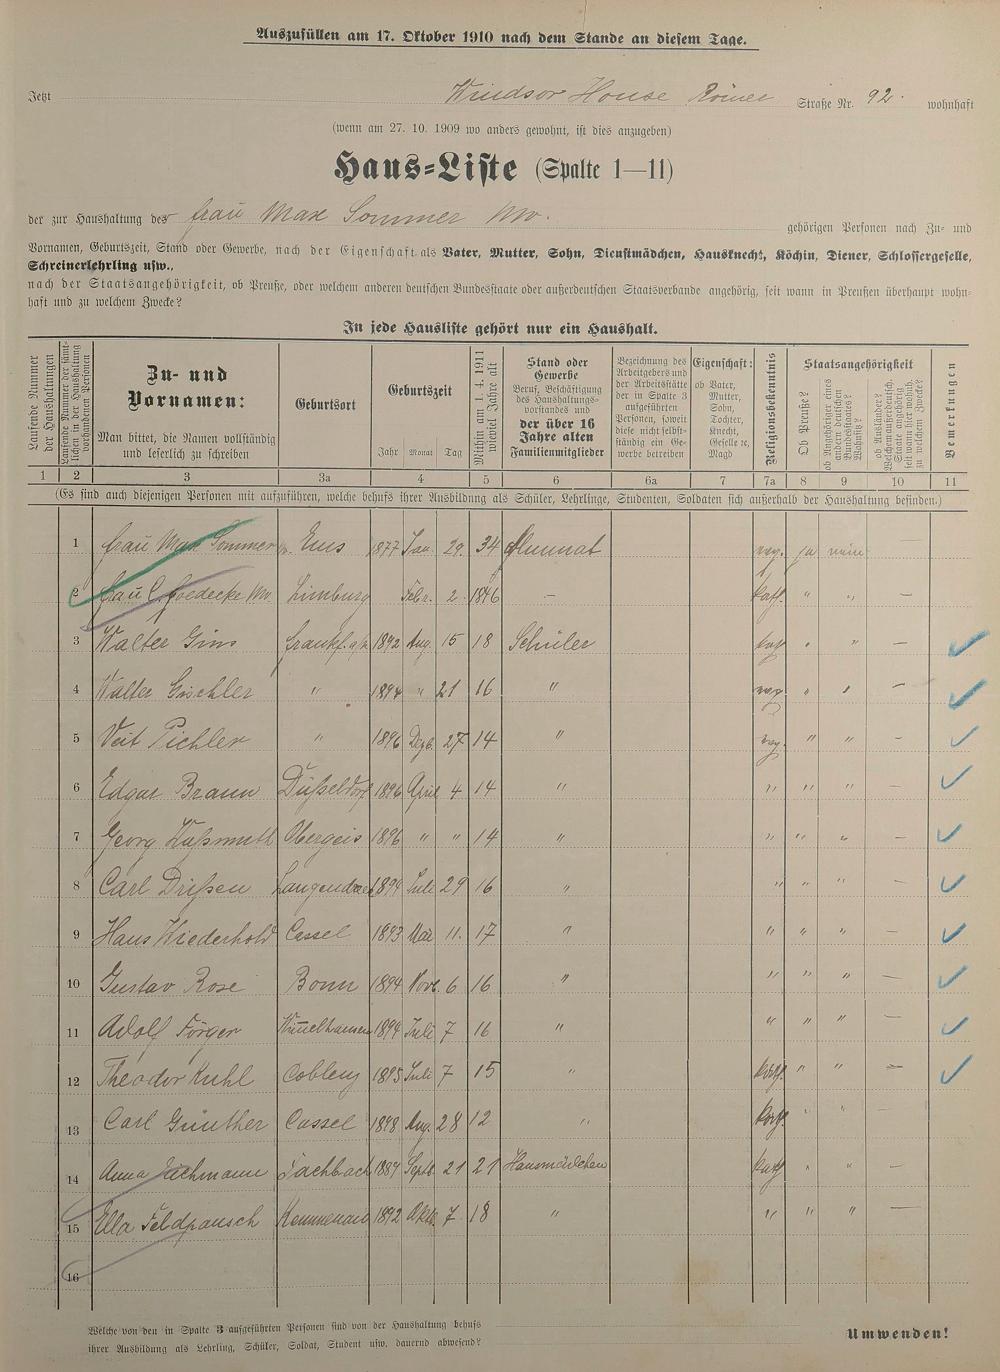 Auszufüllen am 17. Oktober 1910 nach dem Stande an diesem Tage.
Jetzt Windsor House Römer Straße Nr. 92. wohnhaft
(wenn am 27. 10. 1909 wo anders gewohnt, ist dies anzugeben)
Haus-Liste (Spalte 1—11)
der zur Haushaltung des frau Max Sommer Ww. gehörigen Personen nach Zu- und
Vornamen, Geburtszeit, Stand oder Gewerbe, nach der Eigenschaft als Vater, Mutter, Sohn, Dienstmädchen, Hausknecht, Köchin, Diener, Schlossergeselle,
Schreinerlehrling usw.,
nach der Staatsangehörigkeit, ob Preuße, oder welchem anderen deutschen Bundesstaate oder außerdeutschen Staatsverbande angehörig, seit wann in Preußen überhaupt wohn-
haft und zu welchem Zwecke?
In jede Hausliste gehört nur ein Haushalt.
Laufende Nummer der Haushaltungen
Laufende Nummer der sämt-
lichen in der Haushaltung
vorhandenen Personen
Zu- und
Vornamen:
Man bittet, die Namen vollständig
und leserlich zu schreiben
Geburtsort
Geburtszeit
Jahr Monat Tag
Mithin am 1. 4. 1911
wieviel Jahre alt
Stand oder
Gewerbe
Beruf, Beschäftigung
des Haushaltungs-
vorstandes und
der über 16
Jahre alten
Familienmitglieder
Bezeichnung des
Arbeitgebers und
der Arbeitsstätte
der in Spalte 3
aufgeführten
Personen, soweit
diese nicht selbst-
ständig ein Ge-
werbe betreiben
Eigenschaft:
ob Vater,
Mutter,
Sohn,
Tochter,
Knecht,
Geselle ec.
Magd
Religionsbekenntnis
Staatsangehörigkeit
Ob Preuße?
ob Angehöriger eines
andern deutschen
Bundesstaates?
Wohnsitz?
ob Ausländer?
Welchem außerdeutsch.
Staate angehörig
seit wann hier wohnh.
zu welchem Zwecke?
Bemerkungen
1 2 3 3a 4 5 6 6a 7 7a 8 9 10 11
(Es sind auch diejenigen Personen mit aufzuführen, welche behufs ihrer Ausbildung als Schüler, Lehrlinge, Studenten, Soldaten sich außerhalb der Haushaltung befinden.)
1 frau Max Sommer Ems 1877 Jan. 29. 34 ja nein —
2 frau C. Goedecke Ww. Limburg Febr. 2. 1846 — kath. " " —
3 Walter Gins frankf. a/M 1892 Aug. 15 18 Schüler " " —
4 Walter " 1894 " 21 16 " " " —
5 Veit Pichler " 1896 Dezb. 27 14 " " " —
6 Edgar Braun Düsseldorf 1896 April 4 14 " " " " —
7 Georg Obergeis 1896 " " 14 " " " " —
8 Carl Drißen 1894 Juli 29 16 " " " " —
9 Hans Wiederhold Cassel 1893 Mai 11. 17 " " " " —
10 Gustav Rose Bonn 1894 Nov. 6 16 " " " " —
11 Adolf Förger 1894 Juli 7 16 " " " " —
12 Theodor Kuhl Coblenz 1895 Juli 7 15 " " " —
13 Carl Günther Cassel 1898 Aug. 28 12 " " "
14 Anna Jachmann Fachbach 1889 Septb. 21 21 Hausmädchen kath " " —
15 Ella Feldpausch Kemmenau 1892 Okt. 7 18 " " " " —
16
Welche von den in Spalte 3 aufgeführten Personen sind von der Haushaltung behufs
ihrer Ausbildung als Lehrling, Schüler, Soldat, Student usw. dauernd abwesend?
Umwenden!